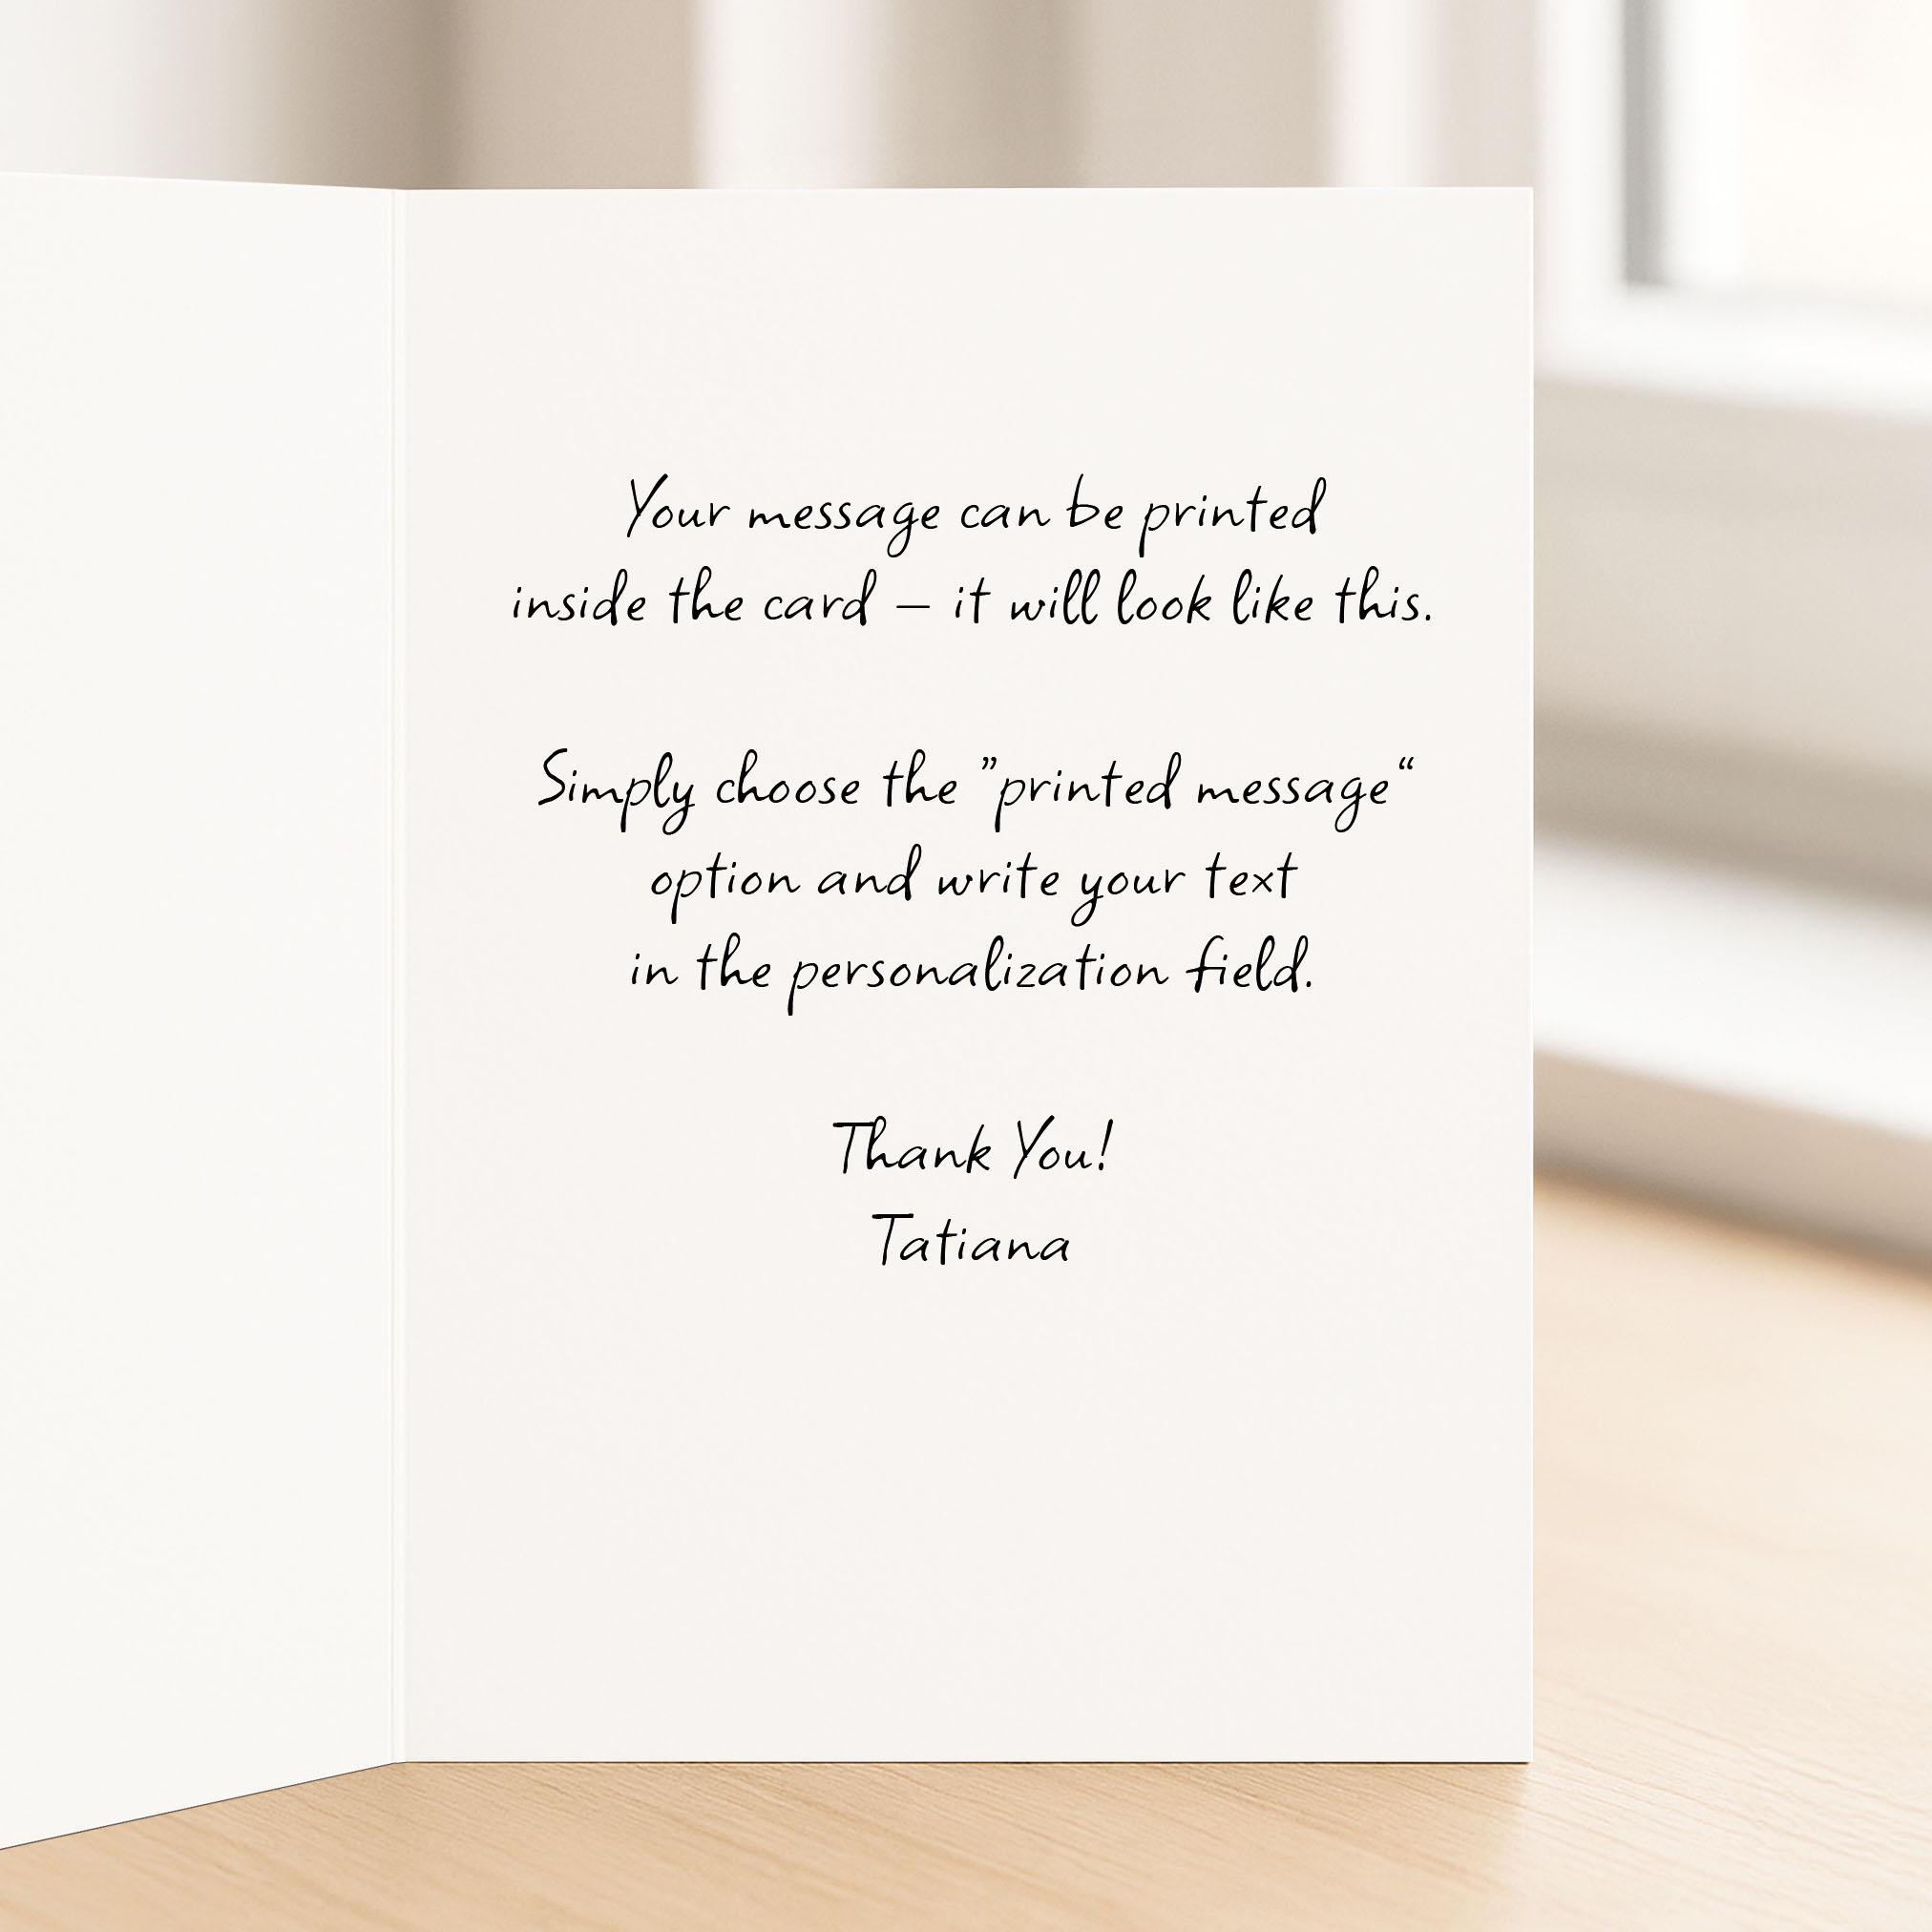 Your message can be printed
inside the card – it will look like this.
Simply choose the ”printed message“
option and write your text
in the personalization field.
Thank You!
Tatiana